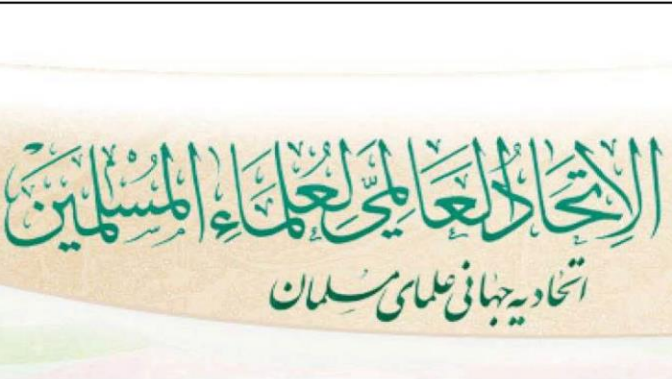 الاِتِّحَادُ العَالَمِيُّ لِعُلَمَاءِ المُسْلِمِينَ
اتحادیه جهانی علمای مسلمان